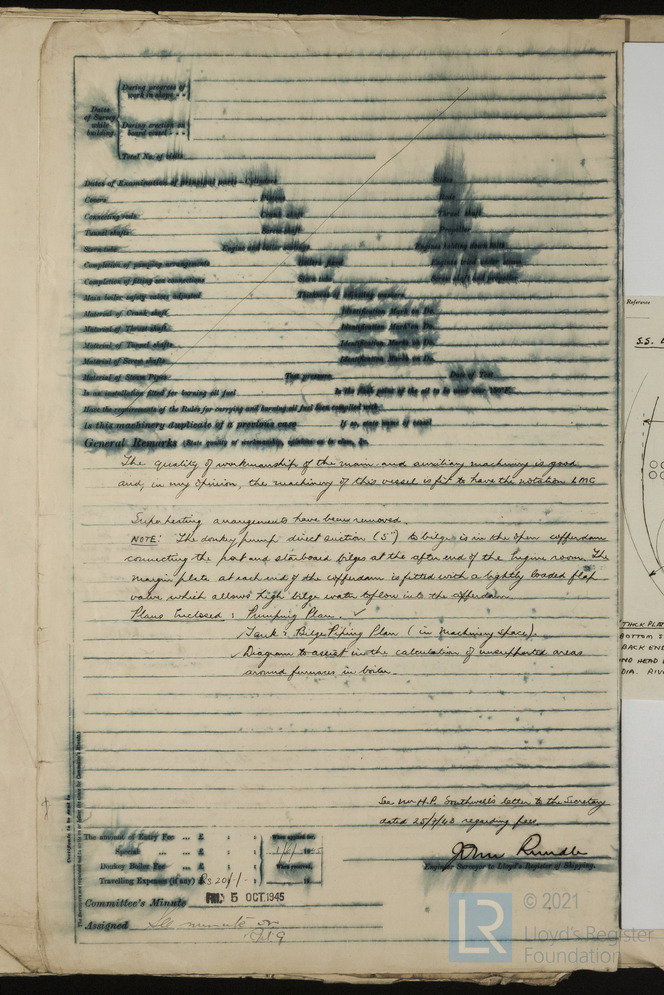 During progress of
work in shops - -
Dates
of Survey
while
building
During erection on
board vessel - - -
Total No. of visits
Dates of Examination of principal parts—Cylinders
Covers
Connecting rods
Crank shaft
Thrust shaft
Tunnel shafts
Screw shaft
Stern tube
Engine and boiler seatings
Engines holding down bolts
Completion of pumping arrangements
Completion of fitting sea connections
Stern tube
Screw shaft and propeller
Main boiler safety valves adjusted
Thickness of adjusting washers
Material of Crank shaft
Identification Mark on Do.
Material of Thrust shaft
Identification Mark on Do.
Material of Tunnel shafts
Identification Marks on Do.
Material of Screw shafts
Identification Marks on Do.
Material of Steam Pipes
Test pressure
Date of Test
Is an installation fitted for burning oil fuel
Is the flash point of the oil to be used over 150°F.
Have the requirements of the Rules for carrying and burning oil fuel been complied with
Is this machinery duplicate of a previous case
If so, state name of vessel
General Remarks (State quality of workmanship, opinions as to class, &c.
The quality of workmanship of the main and auxiliary machinery is good
and, in my opinion, the machinery of this vessel is fit to have the notation LMC
Superheating arrangements have been removed.
NOTE: The donkey pump direct suction (5") to bilge is in the open cofferdam
connecting the port and starboard bilges at the after end of the Engine room. The
margin plate at each end of the cofferdam is fitted with a lightly loaded flap
valve which allows high bilge water to flow into the cofferdam.
Plans Enclosed : Pumping Plan. ✓
Tank & Bilge Piping Plan (in machinery space).
Diagram to assist in the calculation of unsupported areas
around furnaces in boiler.
See Mr H.P. Southwell's letter to the Secretary
dated 25/7/43 regarding fees.
The amount of Entry Fee ... £
When applied for,
Special ... ... £
Donkey Boiler Fee ... £
When received,
Travelling Expenses (if any) £
John Rundle
Engineer Surveyor to Lloyd's Register of Shipping.
Committee's Minute
FRI. 5 OCT. 1945
Assigned
See minute on
Reference
S.S.
THICK PLA
BOTTOM
BACK END
AND HEAD
DIA. RIV
LR
© 2021
Lloyd's Register
Foundation